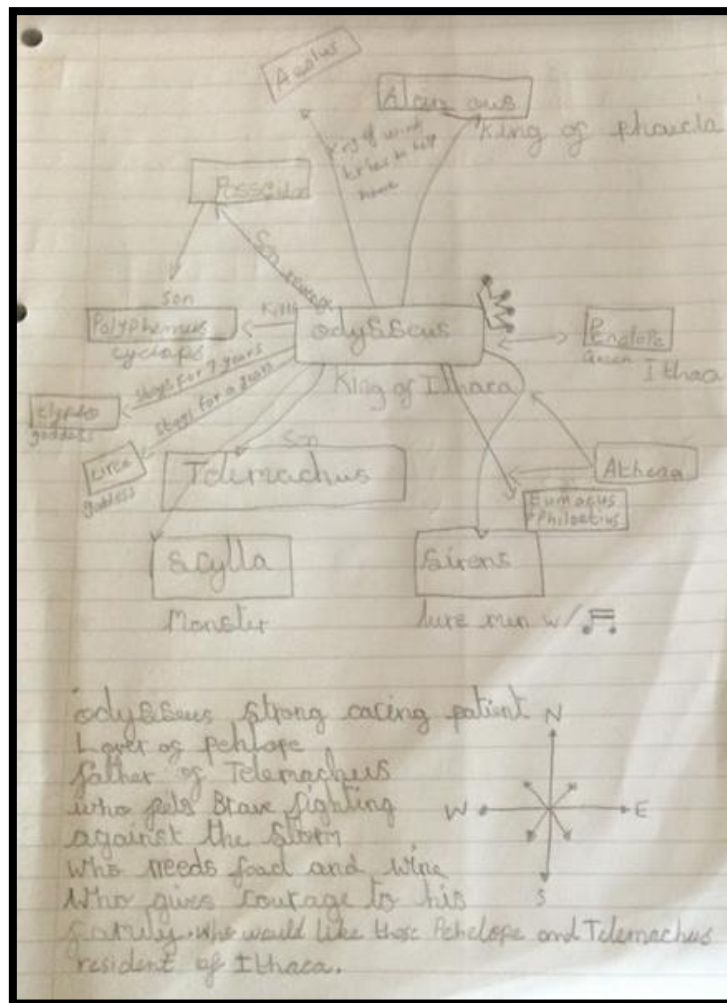 Aeolus
Alcin ous
King of phaicia
King of wind
tries to help
home
Posseidon
Son revenge
son
Kills
Polyphemus
cyclops
odysseus
King of Ithaca
Penelope
Queen Ithaca
stays for 7 years
Clypso
goddess
stays for a year
circe
goddess
Son
Telemachus
Athena
Eumaeus
+ Philoetius
Scylla
Monster
Sirens
lure men w/
odysseus strong caring patient
Lover of Penlope
father of Telemachus
who feels Brave fighting
against the storm
who needs food and wine
Who gives courage to his
family. who would like those Penelope and Telemachus
resident of Ithaca.
N
W
E
S